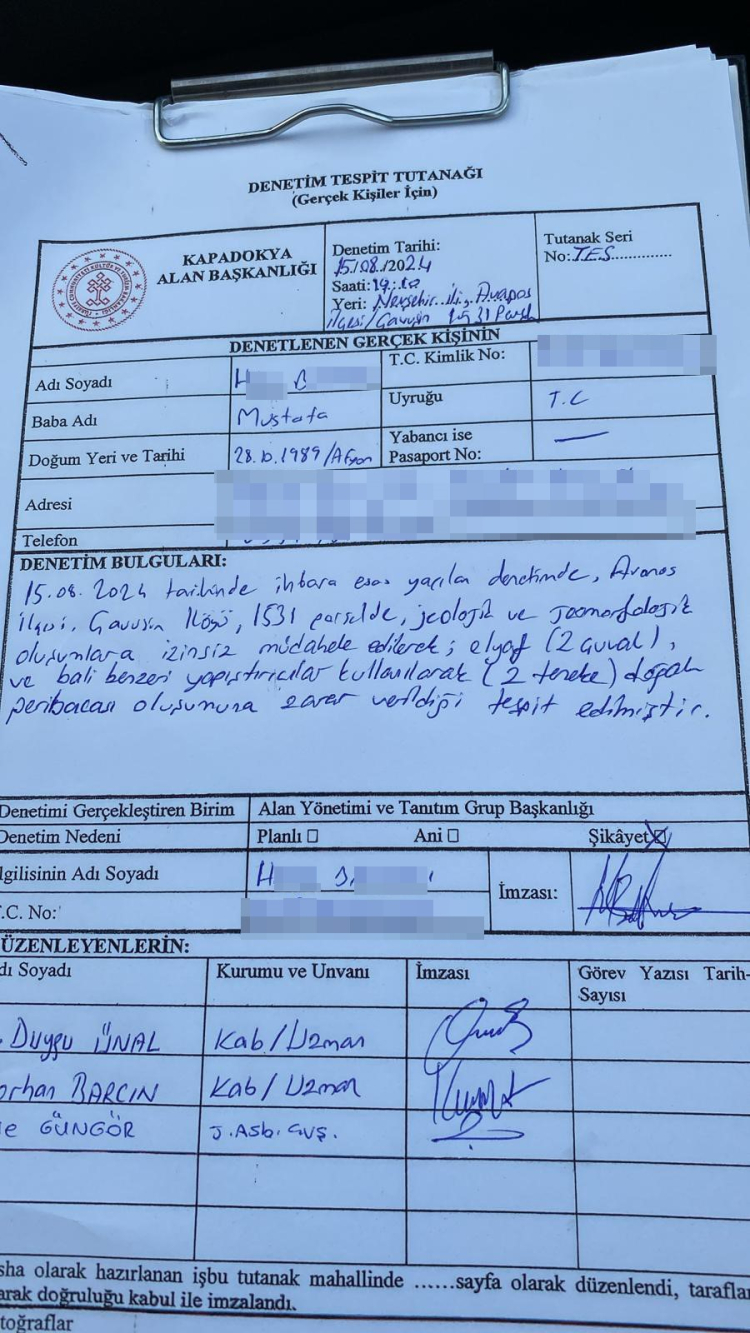 DENETİM TESPİT TUTANAĞI
(Gerçek Kişiler İçin)
KAPADOKYA
ALAN BAŞKANLIĞI
Denetim Tarihi:
15/08/2024
Saati:
Yeri: Nevşehir İli, Avanos
ilçesi/Çavuşin 1531 Parsel
Tutanak Seri
No: TES..............
DENETLENEN GERÇEK KİŞİNİN
Adı Soyadı
H B
T.C. Kimlik No:
Baba Adı
Mustafa
Uyruğu
T.C
Doğum Yeri ve Tarihi
28.10.1989/Afyon
Yabancı ise
Pasaport No:
Adresi
Telefon
DENETİM BULGULARI:
15.08.2024 tarihinde ihbara esas yapılan denetimde, Avanos
ilçesi, Çavuşin Köyü, 1531 parselde, jeolojik ve jeomorfolojik
oluşumlara izinsiz müdahele edilerek; elyaf (2 çuval),
ve bali benzeri yapıştırıcılar kullanılarak (2 teneke) doğal
peribacası oluşumuna zarar verildiği tespit edilmiştir.
Denetimi Gerçekleştiren Birim
Alan Yönetimi ve Tanıtım Grup Başkanlığı
Denetim Nedeni
Planlı □ Ani □ Şikâyet
lgilisinin Adı Soyadı
H B
İmzası:
.C. No:
ÜZENLEYENLERİN:
dı Soyadı
Kurumu ve Unvanı
İmzası
Görev Yazısı Tarih-
Sayısı
Duygu ÜNAL
Kab/Uzman
orhan BARÇIN
Kab/Uzman
e GÜNGÖR
J.Asb.Çvş.
sha olarak hazırlanan işbu tutanak mahallinde ......sayfa olarak düzenlendi, taraflar
arak doğruluğu kabul ile imzalandı.
toğraflar